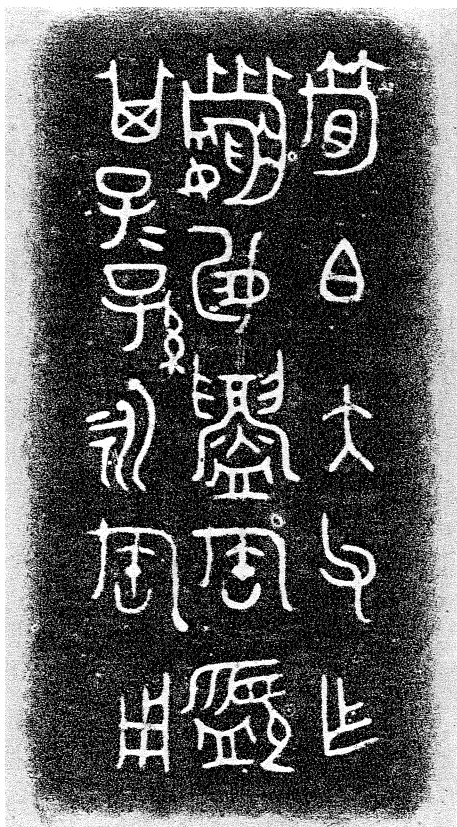 筍白大父乍
嬴妃鑄匋盨
其子子孫永匋用